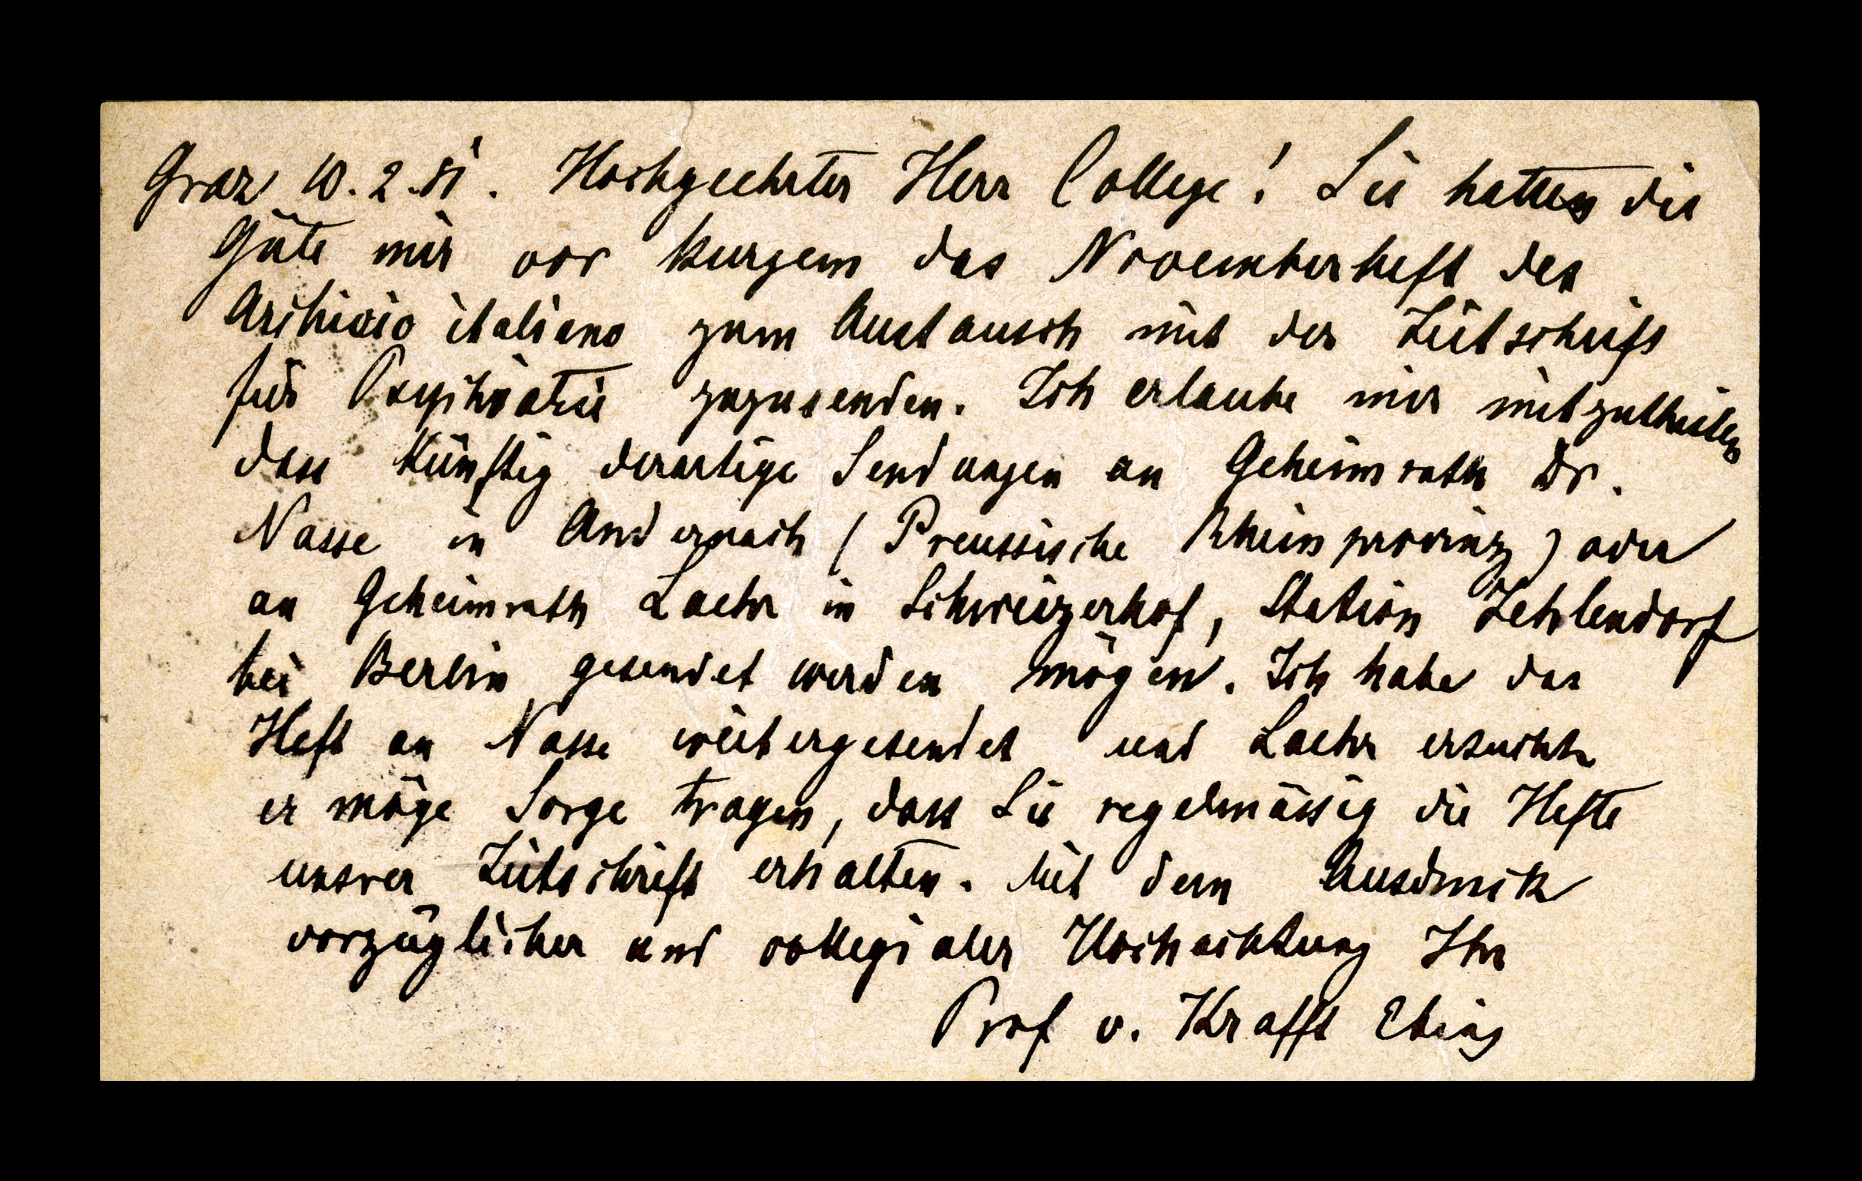 Graz 10.2.81. Hochgeehrter Herr College! Sie hatten die
Güte mir vor kurzem das Novemberheft des
Archivio italiano zum Austausch mit der Zeitschrift
für Psychiatrie zuzusenden. Ich erlaube mir mitzutheilen
dass künftig derartige Sendungen an Geheimrath Dr.
Nasse in Andernach (Preussische Rheinprovinz) oder
an Geheimrath Laehr in Schweizerhof, Station Zehlendorf
bei Berlin gesendet werden mögen. Ich habe das
Heft an Nasse weitergesendet und Laehr ersucht
er möge Sorge tragen, dass Sie regelmässig die Hefte
unsrer Zeitschrift erhalten. Mit dem Ausdruck
vorzüglicher und collegialer Hochachtung Ihr
Prof v. Krafft Ebing